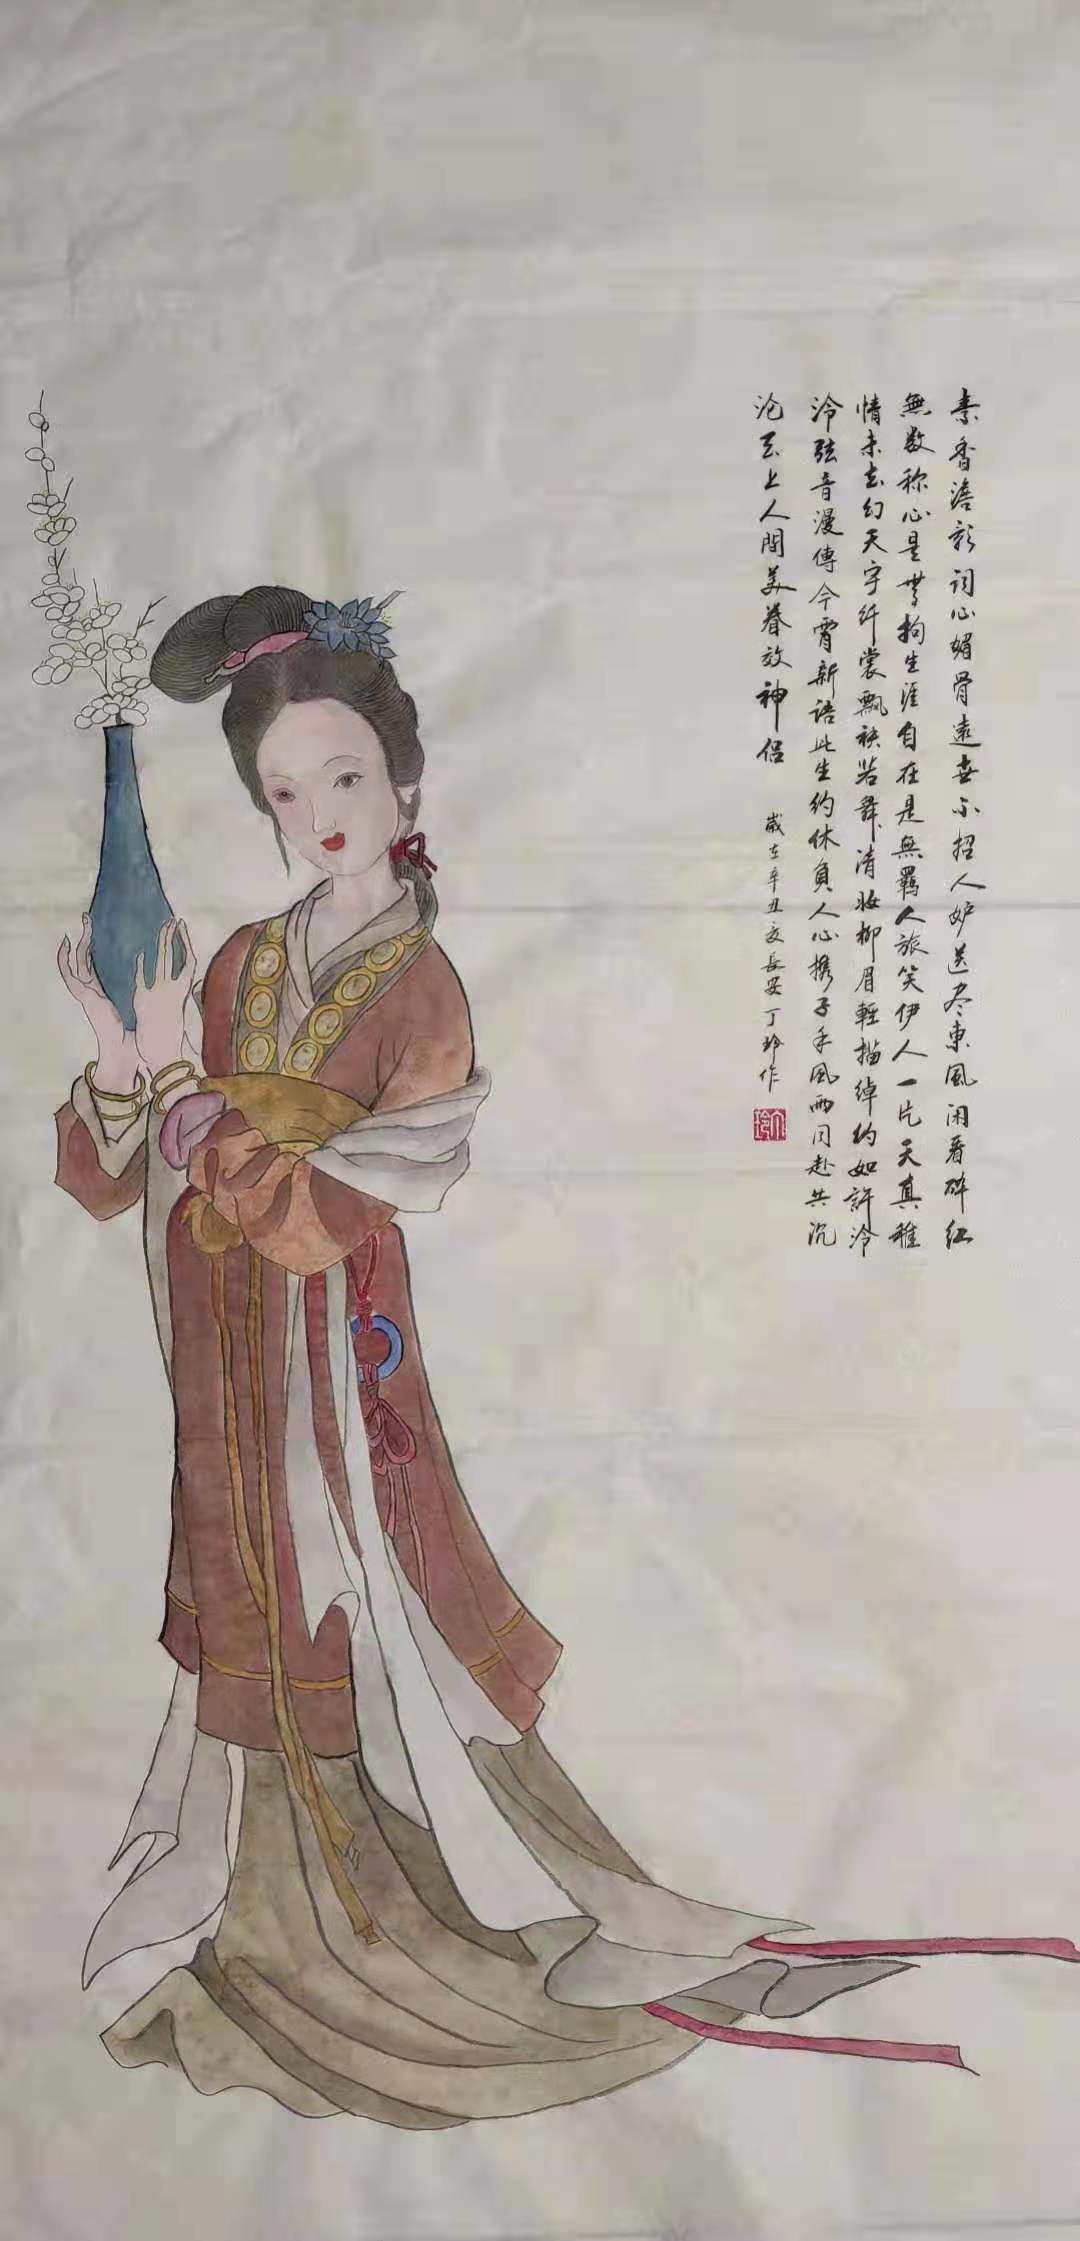 素香澹彩词心媚骨遠世不招人妒送尽東風闲看碎红
無数称心是無拘生涯自在是無羁人旅笑伊人一片天真稚
情未去幻天宇纤裳飄袂若舞清妝柳眉輕描綽约如許泠
泠弦音漫傳今宵新語此生约休負人心携子手風雨同赴共沉
沦天上人間美眷效神侣
歲在辛丑夏長安丁玲作